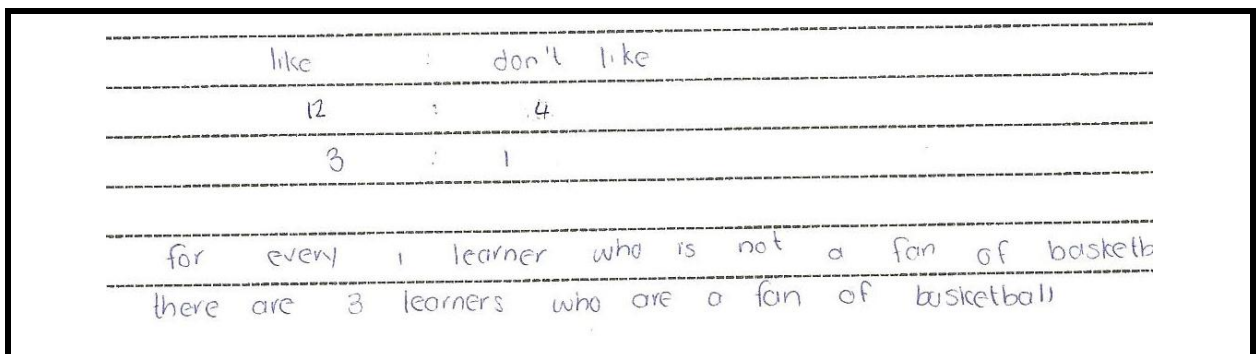 like : don't like
12 : 4
3 : 1
for every 1 learner who is not a fan of basketb
there are 3 learners who are a fan of basketball